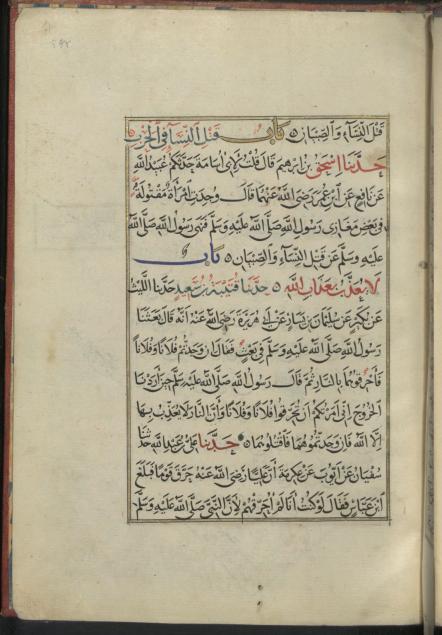 قتل النساء والصبيان ۵ باب قتل النساء في الحرب
حدثنا اسحق بن ابرهيم قال قلت لابي اسامة حدثكم عبيد الله
عن نافع عن ابن عمر رضي الله عنهما قال وجدت امرأة مقتولة
في بعض مغازي رسول الله صلى الله عليه وسلم فنهى رسول الله صلى الله
عليه وسلم عن قتل النساء والصبيان ۵ باب
لا يعذب بعذاب الله ۵ حدثنا قتيبة بن سعيد حدثنا الليث
عن بكير عن سليمان بن يسار عن ابي هريرة رضي الله عنه انه قال بعثنا
رسول الله صلى الله عليه وسلم في بعث فقال ان وجدتم فلانا وفلانا
فأحرقوهما بالنار ثم قال رسول الله صلى الله عليه وسلم حين اردنا
الخروج اني امرتكم ان تحرقوا فلانا وفلانا وان النار لا يعذب بها
الا الله فان وجدتموهما فاقتلوهما ۵ حدثنا علي بن عبد الله حدثنا
سفيان عن ايوب عن عكرمة ان عليا رضي الله عنه حرق قوما فبلغ
ابن عباس فقال لو كنت انا لم احرقهم لان النبي صلى الله عليه وسلم